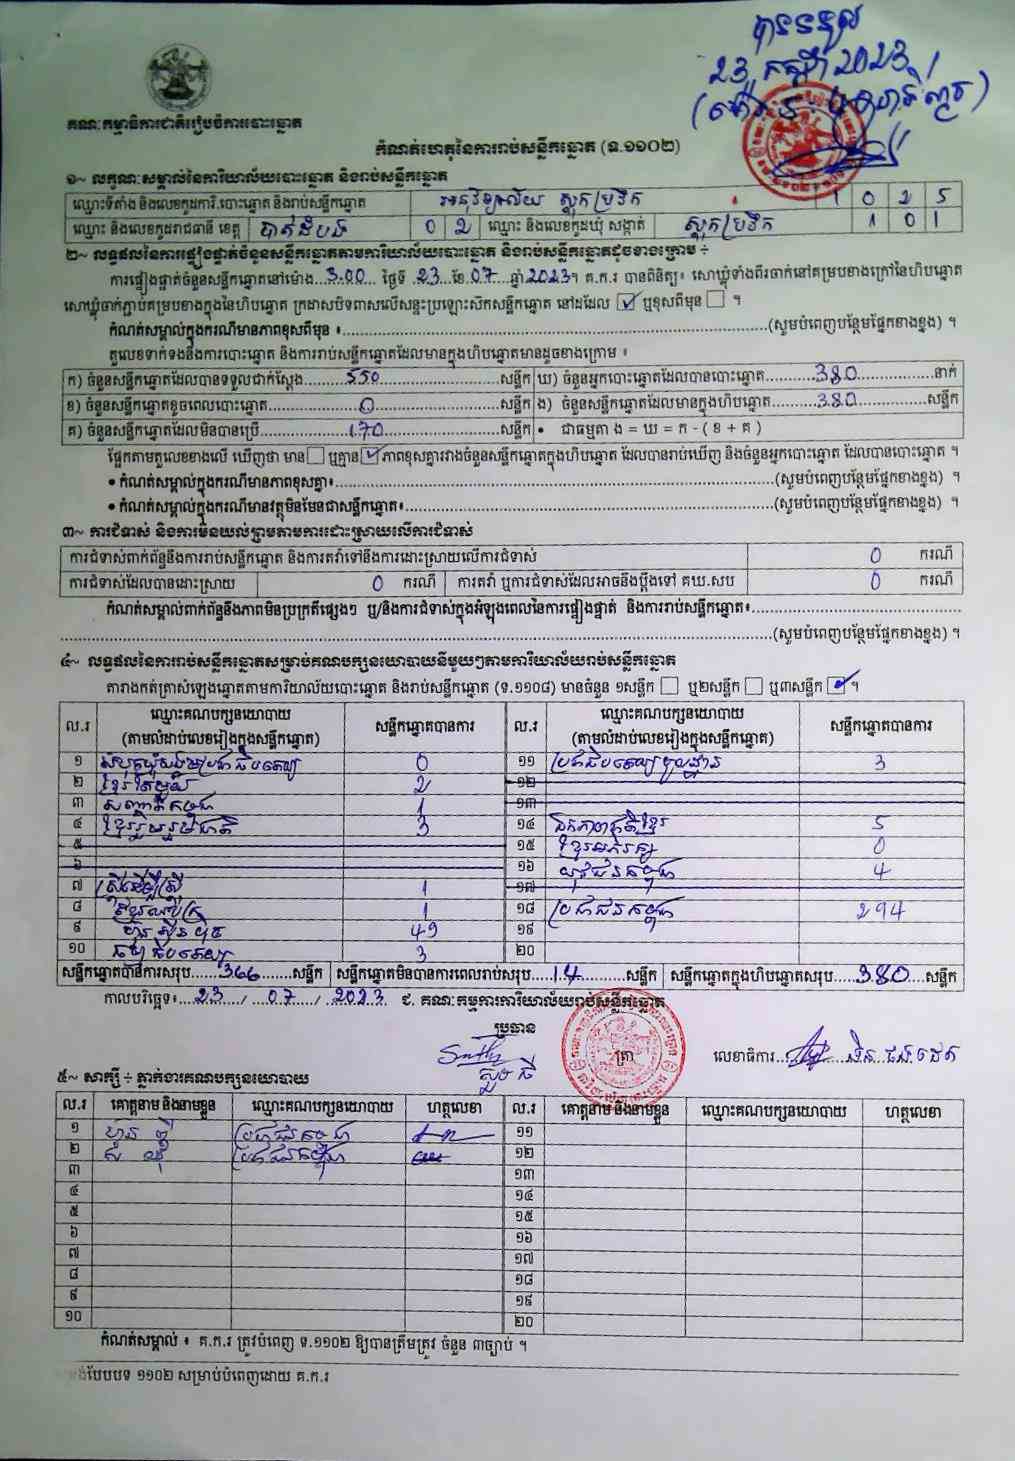 បានទទួល
23 កក្កដា 2023
គណៈកម្មាធិការជាតិរៀបចំការបោះឆ្នោត
កំណត់ហេតុនៃការរាប់សន្លឹកឆ្នោត (ទ.១១០២)
១~ លក្ខណៈសម្គាល់នៃការិយាល័យបោះឆ្នោត និងរាប់សន្លឹកឆ្នោត
ឈ្មោះទីតាំង និងលេខកូដការិ.បោះឆ្នោត និងរាប់សន្លឹកឆ្នោត អនុវិទ្យាល័យ ស្លូកប្រវឹក 1 0 2 5
ឈ្មោះ និងលេខកូដរាជធានី ខេត្ត បាត់ដំបង 0 2 ឈ្មោះ និងលេខកូដឃុំ សង្កាត់ ស្តូកប្រវឹក 1 0 1
២~ លទ្ធផលនៃការផ្ទៀងផ្ទាត់ចំនួនសន្លឹកឆ្នោតតាមការិយាល័យបោះឆ្នោត និងរាប់សន្លឹកឆ្នោតដូចខាងក្រោម ÷
ការផ្ទៀងផ្ទាត់ចំនួនសន្លឹកឆ្នោតនៅម៉ោង 3.00 ថ្ងៃទី 23 ខែ 07 ឆ្នាំ 2023។ គ.ក.រ បានពិនិត្យ៖ សោឃ្លុំទាំងពីរចាក់នៅគម្របខាងក្រៅនៃហិបឆ្នោត
សោឃ្លុំចាក់ភ្ជាប់គម្របខាងក្នុងនៃហិបឆ្នោត ក្រដាសបិទពាសលើសន្ទះប្រឡោះស៊កសន្លឹកឆ្នោត នៅដដែល ☑ ឬខុសពីមុន ☐ ។
កំណត់សម្គាល់ក្នុងករណីមានភាពខុសពីមុន ៖ (សូមបំពេញបន្ថែមផ្នែកខាងខ្នង) ។
តួលេខទាក់ទងនឹងការបោះឆ្នោត និងការរាប់សន្លឹកឆ្នោតដែលមានក្នុងហិបឆ្នោតមានដូចខាងក្រោម ៖
ក) ចំនួនសន្លឹកឆ្នោតដែលបានទទួលជាក់ស្តែង 550 សន្លឹក ឃ) ចំនួនអ្នកបោះឆ្នោតដែលបានបោះឆ្នោត 380 នាក់
ខ) ចំនួនសន្លឹកឆ្នោតខូចពេលបោះឆ្នោត 0 សន្លឹក ង) ចំនួនសន្លឹកឆ្នោតដែលមានក្នុងហិបឆ្នោត 380 សន្លឹក
គ) ចំនួនសន្លឹកឆ្នោតដែលមិនបានប្រើ 170 សន្លឹក • ជាធម្មតា ង = ឃ = ក - ( ខ + គ )
ផ្អែកតាមតួលេខខាងលើ ឃើញថា មាន ☐ ឬគ្មាន ☑ ភាពខុសគ្នារវាងចំនួនសន្លឹកឆ្នោតក្នុងហិបឆ្នោត ដែលបានរាប់ឃើញ និងចំនួនអ្នកបោះឆ្នោត ដែលបានបោះឆ្នោត ។
• កំណត់សម្គាល់ក្នុងករណីមានភាពខុសគ្នា៖ (សូមបំពេញបន្ថែមផ្នែកខាងខ្នង) ។
• កំណត់សម្គាល់ក្នុងករណីមានវត្ថុមិនមែនជាសន្លឹកឆ្នោត៖ (សូមបំពេញបន្ថែមផ្នែកខាងខ្នង) ។
៣~ ការជំទាស់ និងការមិនយល់ព្រមតាមការដោះស្រាយលើការជំទាស់
ការជំទាស់ពាក់ព័ន្ធនឹងការរាប់សន្លឹកឆ្នោត និងការតវ៉ាទៅនឹងការដោះស្រាយលើការជំទាស់ 0 ករណី
ការជំទាស់ដែលបានដោះស្រាយ 0 ករណី ការតវ៉ា ឬការជំទាស់ដែលអាចនឹងប្តឹងទៅ គឃ.សប 0 ករណី
កំណត់សម្គាល់ពាក់ព័ន្ធនឹងភាពមិនប្រក្រតីផ្សេងៗ ឬ/និងការជំទាស់ក្នុងអំឡុងពេលនៃការផ្ទៀងផ្ទាត់ និងការរាប់សន្លឹកឆ្នោត៖
(សូមបំពេញបន្ថែមផ្នែកខាងខ្នង) ។
៤~ លទ្ធផលនៃការរាប់សន្លឹកឆ្នោតសម្រាប់គណបក្សនយោបាយនីមួយៗតាមការិយាល័យរាប់សន្លឹកឆ្នោត
តារាងកត់ត្រាសំឡេងឆ្នោតតាមការិយាល័យបោះឆ្នោត និងរាប់សន្លឹកឆ្នោត (ទ.១១០៨) មានចំនួន ១សន្លឹក ☐ ឬ២សន្លឹក ☐ ឬ៣សន្លឹក ☑ ។
ល.រ ឈ្មោះគណបក្សនយោបាយ (តាមលំដាប់លេខរៀងក្នុងសន្លឹកឆ្នោត) សន្លឹកឆ្នោតបានការ ល.រ ឈ្មោះគណបក្សនយោបាយ (តាមលំដាប់លេខរៀងក្នុងសន្លឹកឆ្នោត) សន្លឹកឆ្នោតបានការ
១ សំបុកឃ្មុំសង្គមប្រជាធិបតេយ្យ 0 ១១ ប្រជាធិបតេយ្យមូលដ្ឋាន 3
២ ខ្មែរតែមួយ 2 ១២
៣ សញ្ជាតិកម្ពុជា 1 ១៣
៤ ខ្មែររួបរួមជាតិ 3 ១៤ ឯកភាពជាតិខ្មែរ 5
៥ ១៥ ខ្មែរអភិរក្ស 0
៦ ១៦ យុវជនកម្ពុជា 4
៧ ស្ត្រីដើម្បីស្ត្រី 1 ១៧
៨ 1 ១៨ ប្រជាជនកម្ពុជា 294
៩ ហ៊្វុនស៊ិនប៉ិច 49 ១៩
១០ ធម្មាធិបតេយ្យ 3 ២០
សន្លឹកឆ្នោតបានការសរុប 366 សន្លឹក សន្លឹកឆ្នោតមិនបានការពេលរាប់សរុប 14 សន្លឹក សន្លឹកឆ្នោតក្នុងហិបឆ្នោតសរុប 380 សន្លឹក
កាលបរិច្ឆេទ៖ 23 / 07 / 2023 ជ. គណៈកម្មការការិយាល័យរាប់សន្លឹកឆ្នោត
ប្រធាន ត្រា លេខាធិការ
៥~ សាក្សី ÷ ភ្នាក់ងារគណបក្សនយោបាយ
ល.រ គោត្តនាម និងនាមខ្លួន ឈ្មោះគណបក្សនយោបាយ ហត្ថលេខា ល.រ គោត្តនាម និងនាមខ្លួន ឈ្មោះគណបក្សនយោបាយ ហត្ថលេខា
១ ប្រជាជនកម្ពុជា ១១
២ ប្រជាជនកម្ពុជា ១២
៣ ១៣
៤ ១៤
៥ ១៥
៦ ១៦
៧ ១៧
៨ ១៨
៩ ១៩
១០ ២០
កំណត់សម្គាល់ ៖ គ.ក.រ ត្រូវបំពេញ ទ.១១០២ ឱ្យបានត្រឹមត្រូវ ចំនួន ៣ច្បាប់ ។
បែបបទ ១១០២ សម្រាប់បំពេញដោយ គ.ក.រ